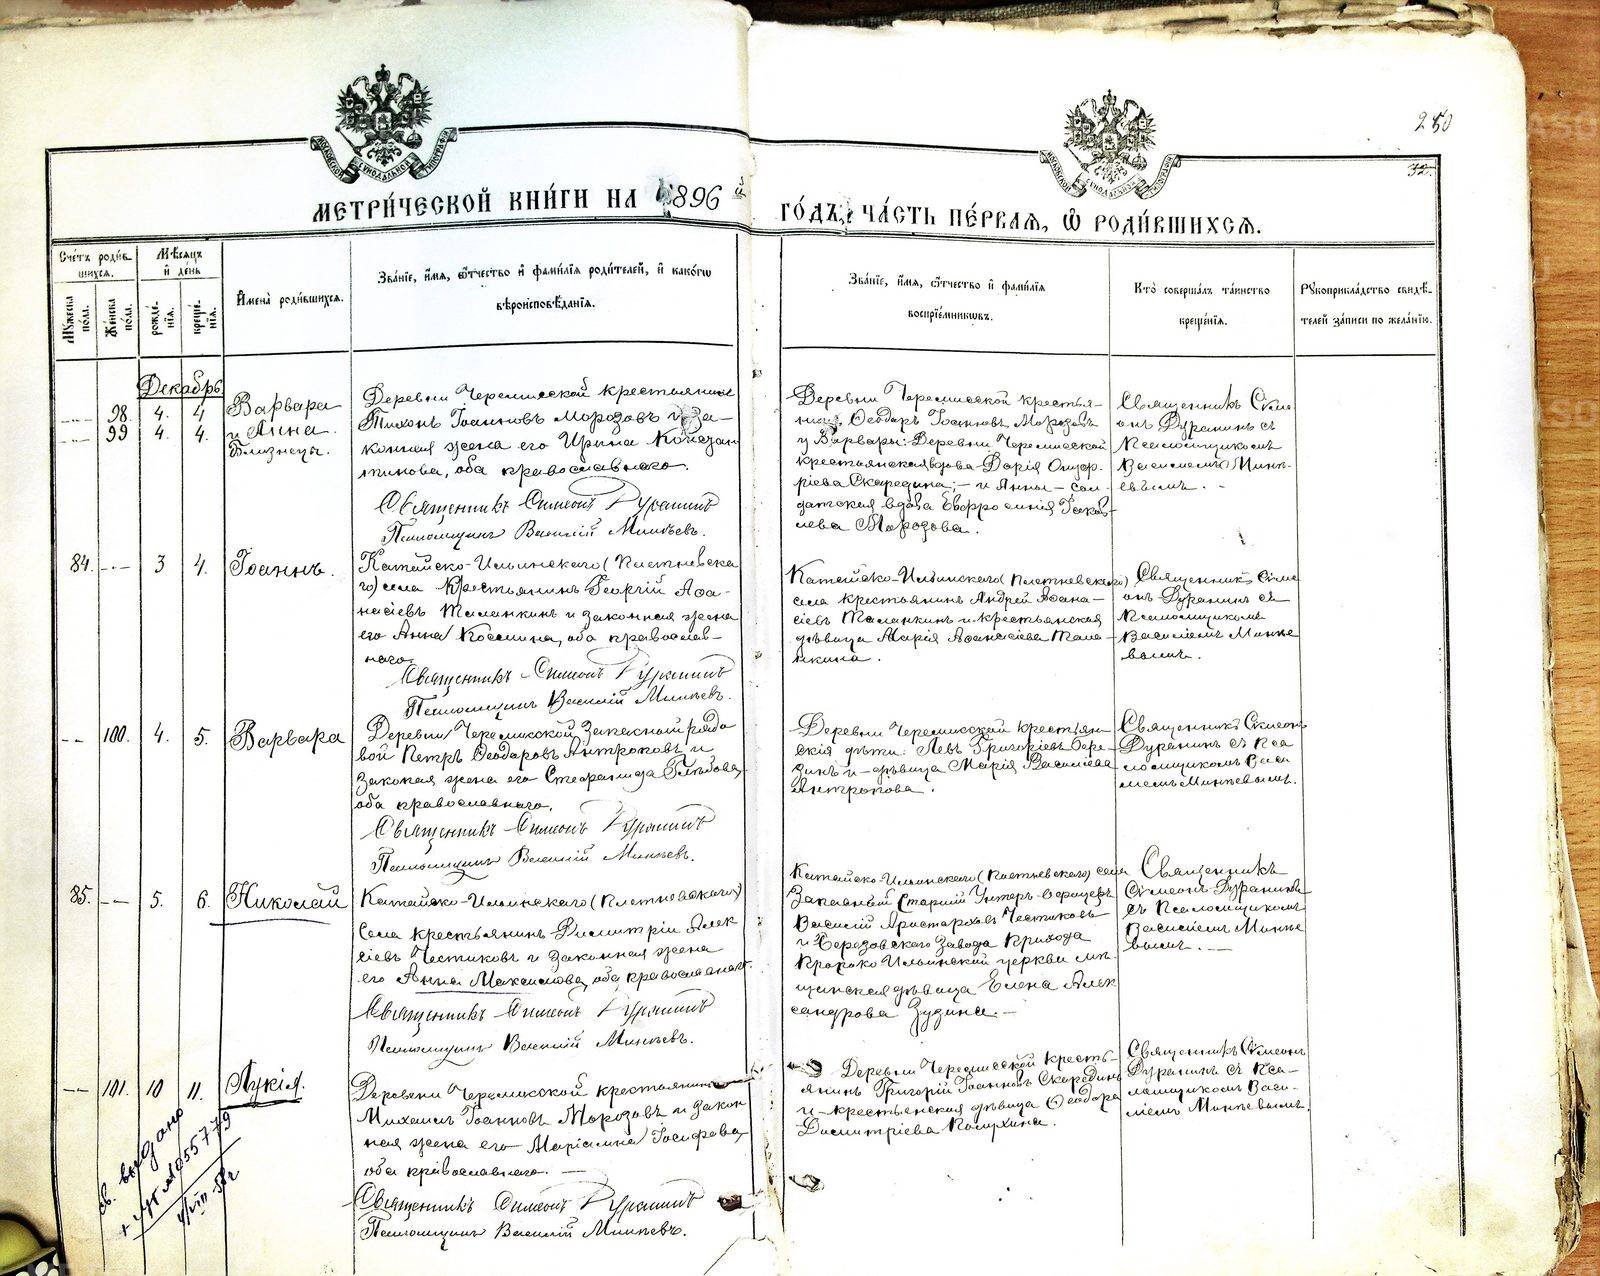 250
32.
МЕТРИ́ЧЕСКОЙ КНИ́ГИ НА 1896 й
ГО́ДЪ, ЧА́СТЬ ПЕ́РВАЯ, Ѽ РОДИ́ВШИХСЯ.
Счетъ роди́в
шихся.
Мѣсяцъ
и́ де́нь
Мꙋжеска
по́ла.
Же́нска
по́ла.
рожде́
нїя.
креще́
нїя.
И҆мена̀ роди́вшихся.
Зва́нїе, и҆́мя, ѻ҆́тчество и҆ фами́лїѧ роди́телей, и҆ како́гѡ
вѣроисповѣ́данїѧ.
Зва́нїе, и҆́мя, ѻ҆́тчество и҆ фами́лїѧ
воспрїе́мникѡвъ.
Кто̀ соверша́лъ та́инство
креще́нїѧ.
Рꙋкоприкла́дство свидѣ́
телей за́писи по жела́нїю.
Декабрь
98. 4. 4 Варвара
99 4. 4. и Анна
Близнецы.
Деревни Черемисской крестьянинъ
Тихонъ Іоанновъ Морозовъ и за-
конная жена его Ирина Констан
тинова, оба православнаго.
Священникъ Симеонъ Дуранинъ
Псаломщикъ Василій Минѣевъ.
Деревни Черемисской крестья-
нинъ Ѳеодоръ Іоанновъ Морозовъ
у Варвары: Деревни Черемисской
крестьянская вдова Дарія
Скаредина; – и Анны – сол-
датская вдова Евфросинія Іаков-
лева Морозова.
Священникъ Сѵме
онъ Дуранинъ съ
Псаломщикомъ
Василіемъ Минѣ-
евымъ. –
84. 3 4. Іоаннъ.
Катайско-Ильинскаго (Плетневска
го) села Крестьянинъ Георгій Аѳа-
насіевъ Таланкинъ и законная жена
его Анна Космина, оба православ-
наго.
Священникъ Симеонъ Дуранинъ
Псаломщикъ Василій Минѣевъ.
Катайско-Ильинскаго (Плетневскаго)
села крестьянинъ Андрей Аѳана-
сіевъ Таланкинъ и крестьянская
дѣвица Марія Аѳанасіева Тала-
нкина.
Священникъ Сѵме
онъ Дуранинъ съ
Псаломщикомъ
Василіемъ Минѣе
вымъ.
100. 4. 5. Варвара
Деревни Черемисской Запасный рядо
вой Петръ Ѳеодоровъ Антроповъ и
Законная жена его Стефанида Глѣбова,
оба православнаго.
Священникъ Симеонъ Дуранинъ
Псаломщикъ Василій Минѣевъ.
Деревни Черемисской крестьян-
скія дѣти: Левъ Григоріевъ
и – дѣвица Марія Василіева
Антропова.
Священникъ Сѵмеонъ
Дуранинъ съ Пса
ломщикомъ Васи
ліемъ Минѣевымъ.
85. 5. 6. Николай
Катайско-Ильинскаго (Плетневскаго)
Села крестьянинъ Димитрій Алек
сіевъ Честиковъ и законная жена
его Анна Максимова, оба православнаго.
Священникъ Симеонъ Дуранинъ
Псаломщикъ Василій Минѣевъ.
Катайско-Ильинскаго (Плетневскаго) села
Запасный Старшій Унтеръ-Офицеръ
Василій Аристарховъ Честиковъ
и Березовскаго Завода Прихода
Пророко Ильинской церкви мѣ-
щанская дѣвица Елена Алек
сандрова Зудина. –
Священникъ
Сѵмеонъ Дуранинъ
съ Псаломщикомъ
Василіемъ Минѣе
вымъ. –
101. 10 11. Лукія.
Деревни Черемисской крестьянинъ
Михаилъ Іоанновъ Морозовъ и закон
ная жена его Маріамна Іосифова,
оба православнаго. –
Священникъ Симеонъ Дуранинъ
Псаломщикъ Василій Минѣевъ.
Деревни Черемисской кресть-
янинъ Григорій Іоанновъ Скарединъ
и – крестьянская дѣвица Ѳеодора
Димитріева
Священникъ Сѵмеонъ
Дуранинъ съ Пса-
ломщикомъ Васи-
ліемъ Минѣевымъ.
св. выдано
№ 055779
4/VIII-58 г